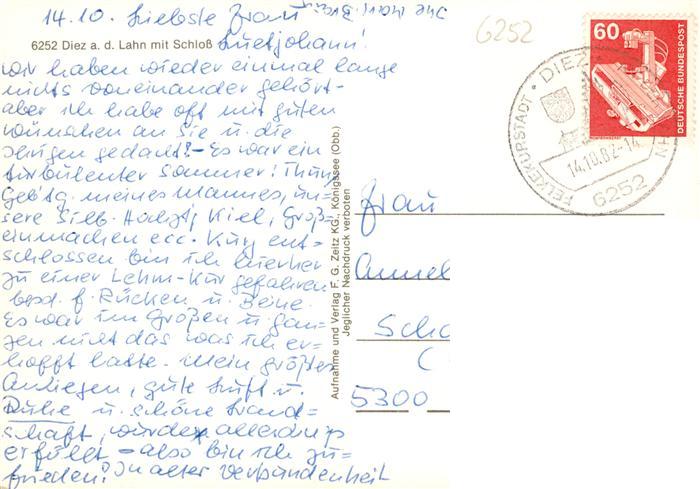 14.10. Liebste Frau
6252 Diez a. d. Lahn mit Schloß
Luetjohann!
wir haben wieder einmal lange
nichts voneinander gehört-
aber ich habe oft mit guten
Wünschen an Sie u. die
Ihrigen gedacht! - Es war ein
turbulenter Sommer!
Gebtg. meines Mannes, un-
sere Silb. Hochzt, Kiel, Groß-
einmachen ecc. Kurz ent-
schlossen bin ich hierher
zu einer Lehm-Kur gefahren
besd. f. Rücken u. Beine.
Es war im Großen u. gan-
zen nicht das was ich er-
hofft hatte. Mein größtes
Anliegen, gute Luft u.
Ruhe u. schöne Land=
schaft, wurden allerdings
erfüllt - also bin ich zu-
frieden! In alter Verbundenheit
Ihre
Aufnahme und Verlag F. G. Zeitz KG., Königssee (Obb.)
Jeglicher Nachdruck verboten
6252
60
DEUTSCHE BUNDESPOST
FELKEKURSTADT · DIEZ
14.10.82-14
6252
Frau
Annel
Scho
5300